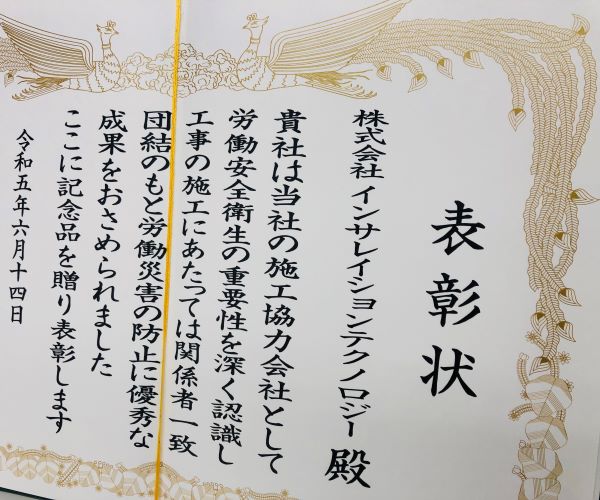 表彰状
株式会社 インサレイションテクノロジー 殿
貴社は当社の施工協力会社として
労働安全衛生の重要性を深く認識し
工事の施工にあたっては関係者一致
団結のもと労働災害の防止に優秀な
成果をおさめられました
ここに記念品を贈り表彰します
令和五年六月十四日